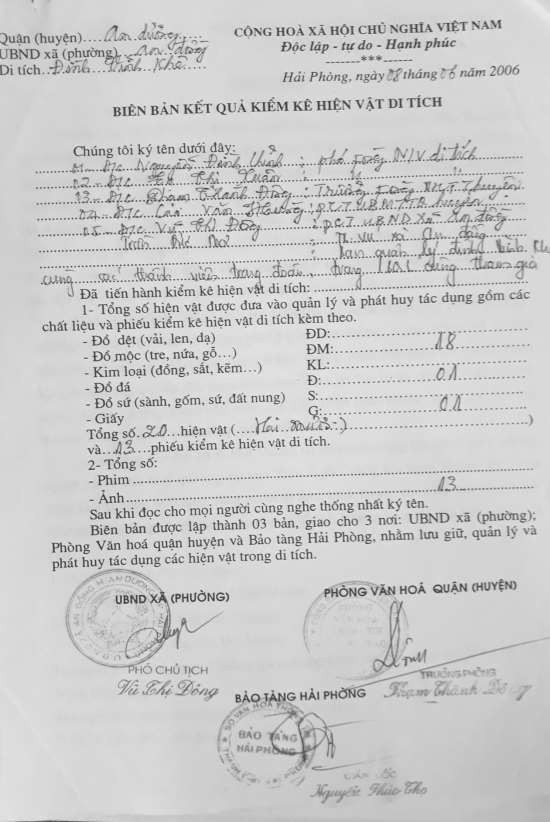 Quận (huyện)....An dương....
UBND xã (phường)...An đồng
Di tích...Đình Vĩnh Khê....
CỘNG HOÀ XÃ HỘI CHỦ NGHĨA VIỆT NAM
Độc lập - tự do - Hạnh phúc
-------***------
Hải Phòng, ngày 08 tháng 06 năm 2006
BIÊN BẢN KẾT QUẢ KIỂM KÊ HIỆN VẬT DI TÍCH
Chúng tôi ký tên dưới đây:
01- Đ/c Nguyễn Đình Chỉnh : phó phòng N/V di tích
02- Đ/c Thị Xuân : "
03- Đ/c Phạm Thanh Đông: Trưởng phòng huyện
04- Đ/c Văn : P.C.T huyện
05- Đ/c Vũ Thị Đông : P.C.T UBND xã An đồng
Trần : xã An đồng
: ban quản lý đình Vĩnh Kh
cùng các thành viên trong đoàn, trong cùng tham gia
Đã tiến hành kiểm kê hiện vật di tích:
1- Tổng số hiện vật được đưa vào quản lý và phát huy tác dụng gồm các
chất liệu và phiếu kiểm kê hiện vật di tích kèm theo.
- Đồ dệt (vải, len, dạ) ĐD:
- Đồ mộc (tre, nứa, gỗ...) ĐM: 18
- Kim loại (đồng, sắt, kẽm...) KL:
- Đồ đá Đ: 01
- Đồ sứ (sành, gốm, sứ, đất nung) S:
- Giấy G: 01
Tổng số..20...hiện vật (....Hai mươi.)
và...13....phiếu kiểm kê hiện vật di tích.
2- Tổng số:
- Phim
- Ảnh 13
Sau khi đọc cho mọi người cùng nghe thống nhất ký tên.
Biên bản được lập thành 03 bản, giao cho 3 nơi: UBND xã (phường);
Phòng Văn hoá quận huyện và Bảo tàng Hải Phòng, nhằm lưu giữ, quản lý và
phát huy tác dụng các hiện vật trong di tích.
UBND XÃ (PHƯỜNG)
PHÒNG VĂN HOÁ QUẬN (HUYỆN)
PHÓ CHỦ TỊCH
Vũ Thị Đông
TRƯỞNG PHÒNG
Phạm Thanh Đông
BẢO TÀNG HẢI PHÒNG
BẢO TÀNG
HẢI PHÒNG
GIÁM ĐỐC
Nguyễn Phúc Thọ